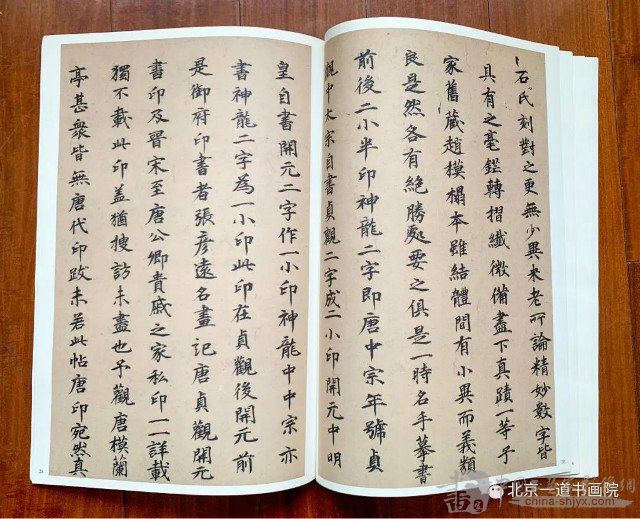 石氏刻對之更無少異米老所論精妙數字皆
具有之毫鋩轉摺纖微備盡下真蹟一等予
家舊藏趙模搨本雖結體間有小異而義類
良是然各有絶勝處要之俱是一時名手摹書
前後二小半印神龍二字即唐中宗年號貞
觀中太宗自書貞觀二字成二小印開元中明
皇自書開元二字作一小印神龍中中宗亦
書神龍二字為一小印此印在貞觀後開元前
是御府印書者張彦遠名畫記唐貞觀開元
書印及晋宋至唐公卿貴戚之家私印一一詳載
獨不載此印盖猶搜訪未盡也予觀唐模蘭
亭甚衆皆無唐代印跋未若此帖唐印宛然真
北京一道书画院
www.china-shjyx.com